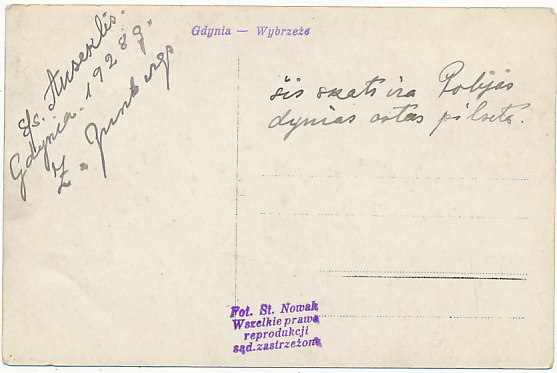 Gdynia — Wybrzeże
s/s. Auseklis.
Gdynia. 1928 g.
Ž. Grünbergs
šis skats ira Polijas
dynias ostas pilseta.
Fot. St. Nowak
Wszelkie prawa
reprodukcji
sąd.zastrzeżone